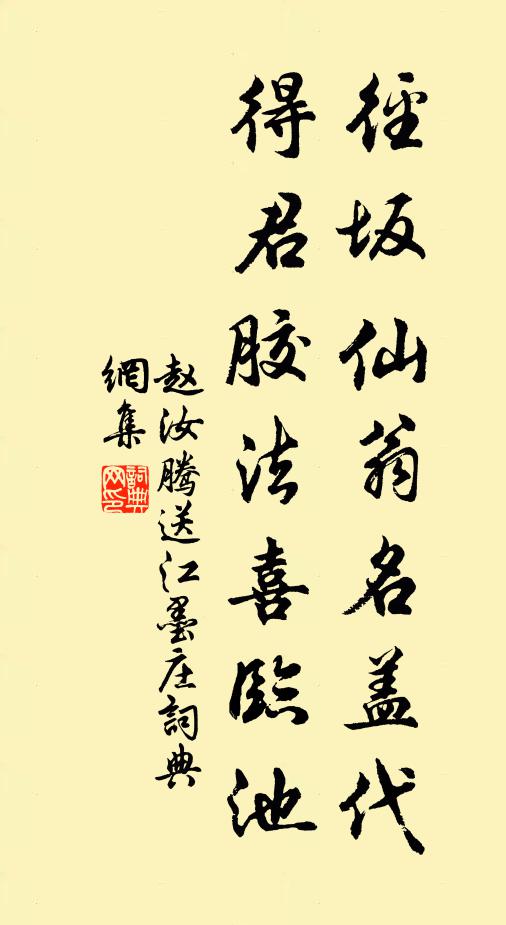 徑坂仙翁名盖代
得君胶法喜臨池
赵汝腾送江墨庄詞典
網集
詞典网印